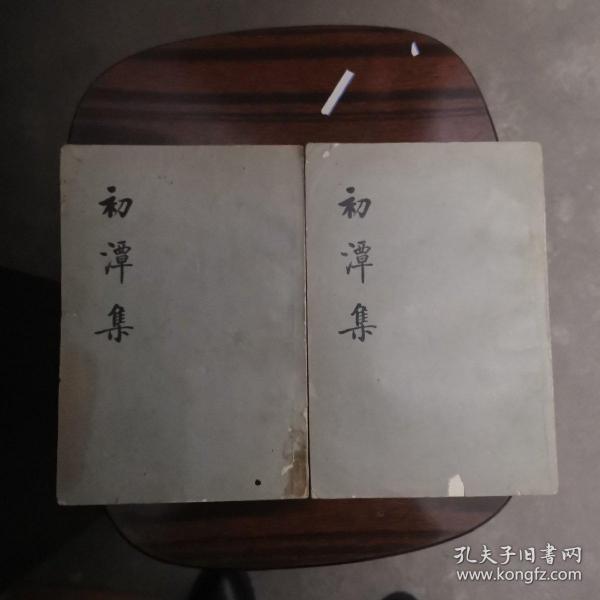 初潭集
初潭集
孔夫子旧书网
www.kongfz.com